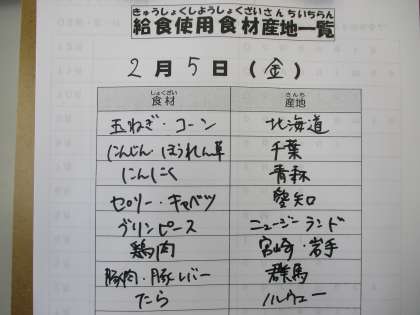 きゅうしょくしようしょくざいさんちいちらん
給食使用食材産地一覧
2月5日(金)
しょくざい さんち
食材 産地
玉ねぎ・コーン 北海道
にんじん・ほうれん草 千葉
にんにく 青森
セロリー・キャベツ 愛知
グリンピース ニュージーランド
鶏肉 宮崎・岩手
豚肉・豚レバー 群馬
たら ノルウェー